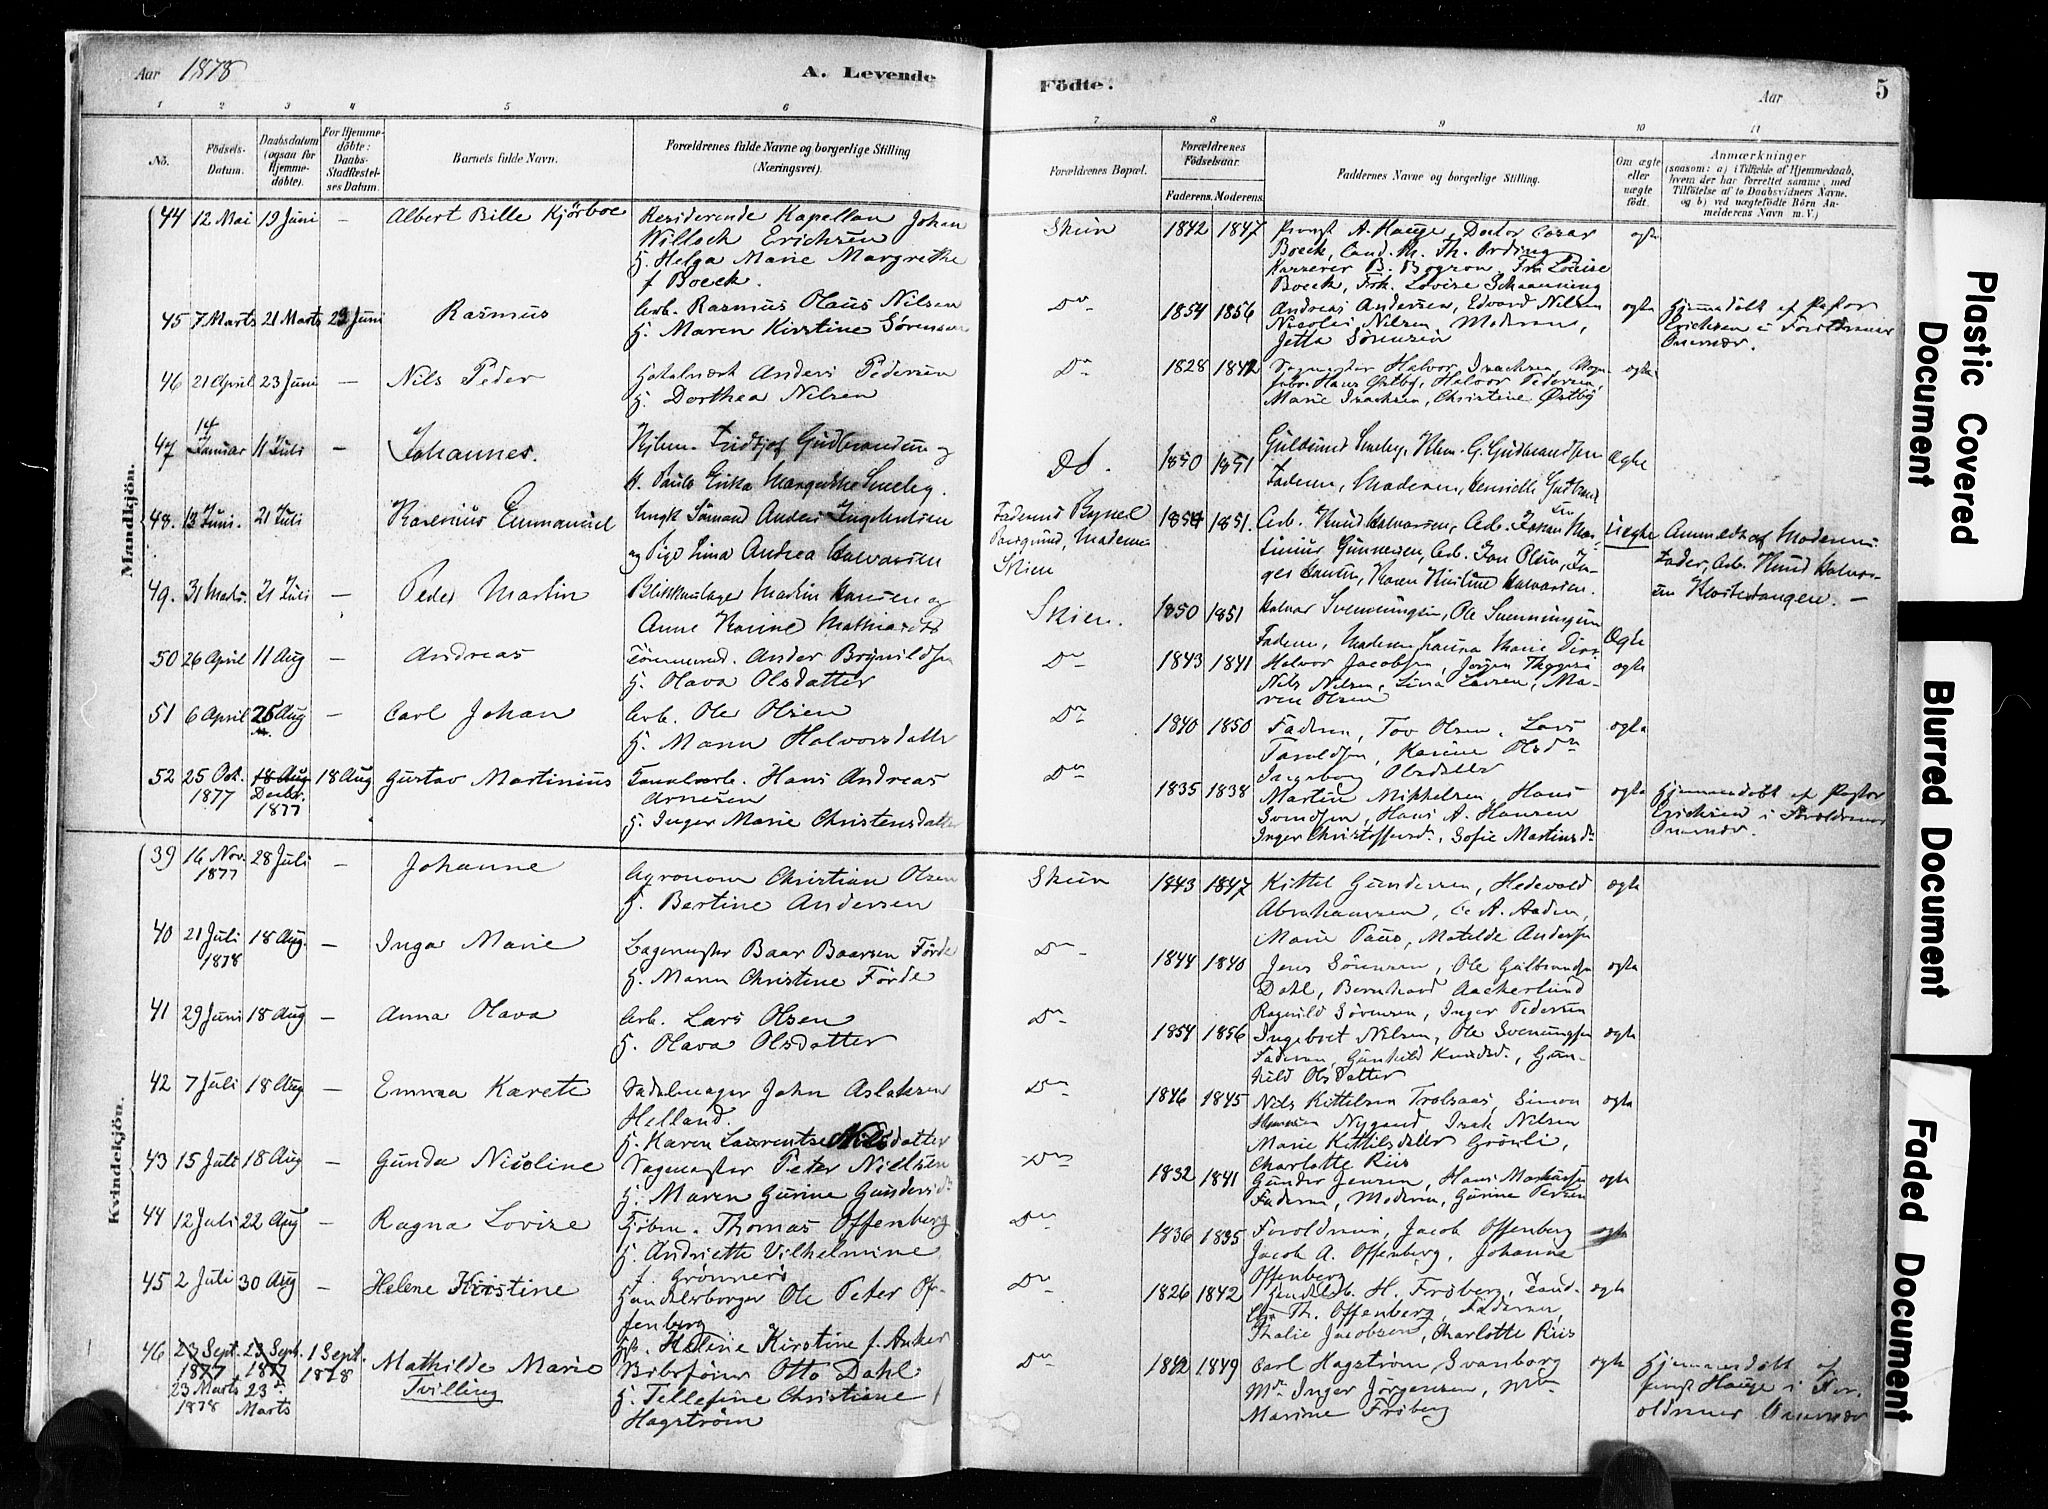 Aar 1878
A. Levende
Födte.
Aar
5
1 2 3 4 5 6 7 8 9 10 11
No.
Födsels-
Datum.
Daabsdatum
(ogsaa for
Hjemme-
döbte).
For Hjemme-
döbte:
Daabs-
Stadfæstel-
ses Datum.
Barnets fulde Navn.
Forældrenes fulde Navne og borgerlige Stilling
(Næringsvei).
Forældrenes Bopæl.
Forældrenes
Födselsaar.
Faderens. Moderens.
Faddernes Navne og borgerlige Stilling.
Om ægte
eller
uægte
födt.
Anmærkninger
(saasom: a) i Tilfælde af Hjemmedaab,
hvem der har forrettet samme, med
Tilföielse af to Daabsvidners Navne.
og b) ved uægtefödte Börn An-
melderens Navn m. V.)
Mandkjön.
44 12 Mai 19 Juni — Albert Bille Kjörboe
Residerende Kapellan Johan
Willoch Erichsen
H. Helga Marie Margrethe
f Boeck.
Skien 1842 1847
Provst A. Hauge, Doctor Cæsar
Boeck, Cand. Th. Ording
Boeck, Frk. Lovise Schaanning
ægte
45 7 Marts 21 Marts 23 Juni Rasmus
Arb. Rasmus Olaus Nilsen
H. Maren Kirstine Sørensen
Do 1854 1856
Andreas Andersen, Edvard Nilsen
Nicolai Nilsen, Moderen,
Jetta Sørensen
ægte
Hjemmedöbt af Pastor
Erichsen i Forældrenes
Overvær.
46 21 April 23 Juni — Nils Peder
Anders Pedersen
H. Dorthea Nilsen
Do 1828 1842
Halvor Isachsen,
Hans Østby, Halvor Pedersen,
Marie Isachsen, Christine Østby
ægte
47 14 Januar 11 Juli — Johannes.
Fridtjof Gudbrandsen og
H. Paula Erika Margrethe Smeby.
Do. 1850 1851
Guldbrand Smeby, Klem. G. Gudbrandsen
Faderen, Moderen, Henriette
Ægte
48. 13 Juni. 21 Juli Karenius Emmanuel
Ungk. Sömand Anders Ingebretsen
og Pige Lina Andrea Halvorsen
Faderens Bopæl
Porsgrund, Moderens
Skien
1854 1851.
Arb. Knud Halvorsen, Arb. Johan Mar-
tinius Gunnersen, Arb. Jan Olsen, In-
ger Hansen, Karen Kirstine Halvorsen.
Uægte
Anmeldt af Moderens
Fader, Arb. Knud Halvor-
sen Klosterhaugen. —
49. 31 Marts. 21 Juli — Peder Martin
Blikkenslager Martin Hansen og
Anne Karine
Skien. 1850 1851
Halvor Svenningsen, Ole Svenningsen
Faderen, Moderen, Laura Marie
Ægte
50 26 April 11 Aug — Andreas
Tömmerm. Anders Brynildsen
H. Olava Olsdatter
Do 1843 1841
Halvor Jacobsen, Jörgen
Nils Nilsen, Lina Larsen, Ma-
ren Olsen
ægte
51 6 April 25 Aug — Carl Johan
Arb. Ole Olsen
H. Maren Halvorsdatter
Do 1840 1850
Faderen, Tov Olsen, Lars
Taraldsen, Karine Olsdr
Ingeborg Olsdatter
ægte
52 25 Oct. 1877 18 Aug Decbr. 1877 18 Aug Gustav Martinius
Hans Andreas
Arnesen
H. Inger Marie Christensdatter
Do 1835 1838
Martin Mikkelsen, Hans
Svendsen, Hans A. Hansen
Inger Christoffersd., Sofie Martinsd.
ægte
Hjemmedöbt af Pastor
Erichsen i Forældrenes
Overvær.
Kvindekjön.
39 16 Nov. 1877 28 Juli — Johanne
Agronom Christian Olsen
H. Bertine Andersen
Skien 1843 1847
Kittel Gundersen, Hedevold
Abrahamsen, C. A. Aaden,
Marie Paus, Matilde Andersen
ægte
40 21 Juli 1878 18 Aug. — Inga Marie
Sagemester Baar Baarsen Förde
H. Maren Christine Förde
Do 1844 1840
Jens Sörensen, Ole Gulbrandsen
Dahl, Bernhard Aackerlund
Ragnild Sörensen, Inger Pedersen
ægte
41 29 Juni 18 Aug — Anna Olava
Arb. Lars Olsen
H. Olava Olsdatter
Do 1854 1856
Ingebret Nilsen, Ole Svenungsen
Faderen, Gunhild Knudsd., Gun-
hild Olsdatter
ægte
42 7 Juli 18 Aug — Emma Karete
Sadelmager John Aslaksen
Helland.
H. Karen Laurentse Nilsdatter
Do 1846 1845
Nils Kittelsen Trolsaas, Simon
Hansen Nygaard, Isak Nilsen
Marie Kittilsdatter Grönli,
Charlotte Riis
ægte
43 15 Juli 18 Aug — Gunda Nicoline
Sagmester Peter Nielsen
H. Maren Gurine Gundersdr
Do 1832 1841
Gunder Jensen, Hans Markusen
Faderen, Moderen, Gurine Petersen
ægte
44 12 Juli 22 Aug — Ragna Lovise
Kjöbm. Thomas Offenberg
H. Andriette Vilhelmine
f. Grönners
Do 1836 1835
Forældrene, Jacob Offenberg
Jacob A. Offenberg, Johanne
Offenberg
ægte
45 2 Juli 30 Aug — Helene Kristine
Handelsborger Ole Peter Of-
fenberg
H. Helene Kirstine f. Anker
Do 1826 1842
Handelsb. H. Friberg, Cand-
Th. Offenberg, Faderen,
Thalie Jacobsen, Charlotte Riis
ægte
46 23 Sept. 1877 23 Marts 1878 23 Sept. 1877 23de Marts 1 Sept. 1878 Mathilde Marie
Tvilling
Otto Dahl
H. Tellefine Christiane
Hagström
Do 1842 1849
Carl Hagström, Svanborg
Md. Inger Jörgensen, Md.
Marine Friberg
ægte
Hjemmedöbt af
Provst Hauge i For-
ældrenes Overvær
Plastic Covered
Document
Blurred Document
Faded Document